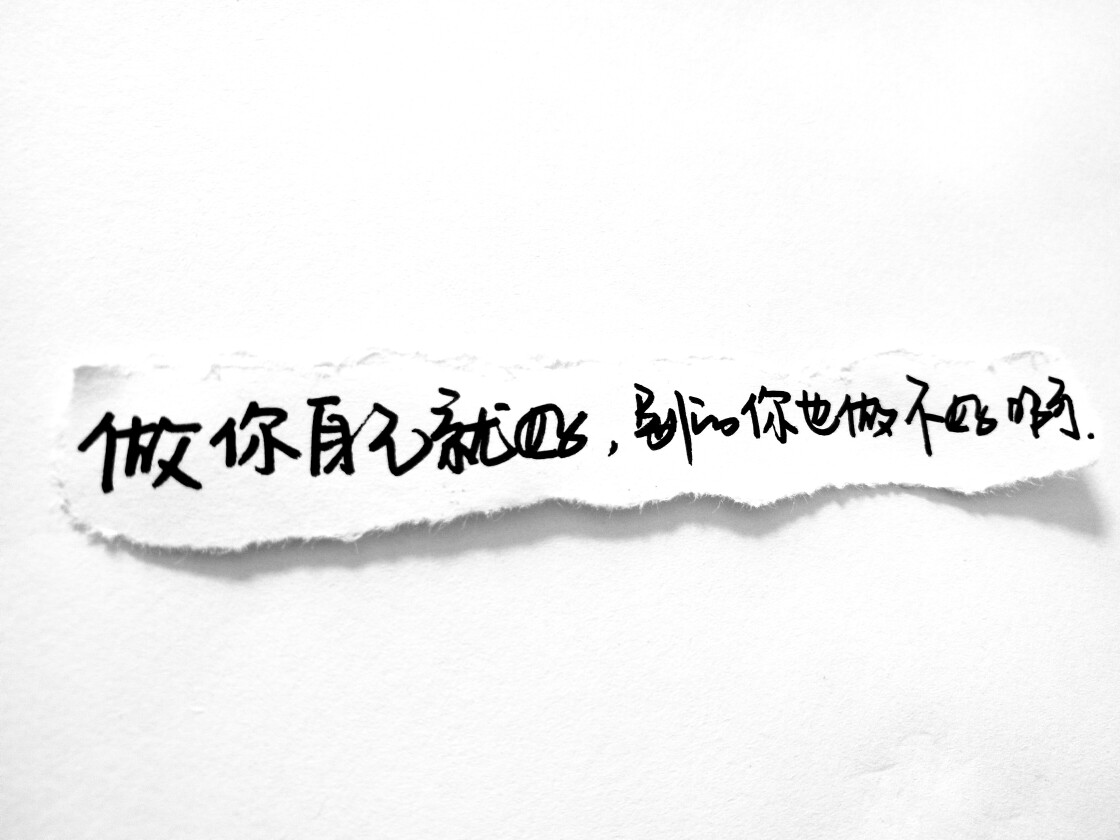 做你自己就好，别的你也做不好啊.